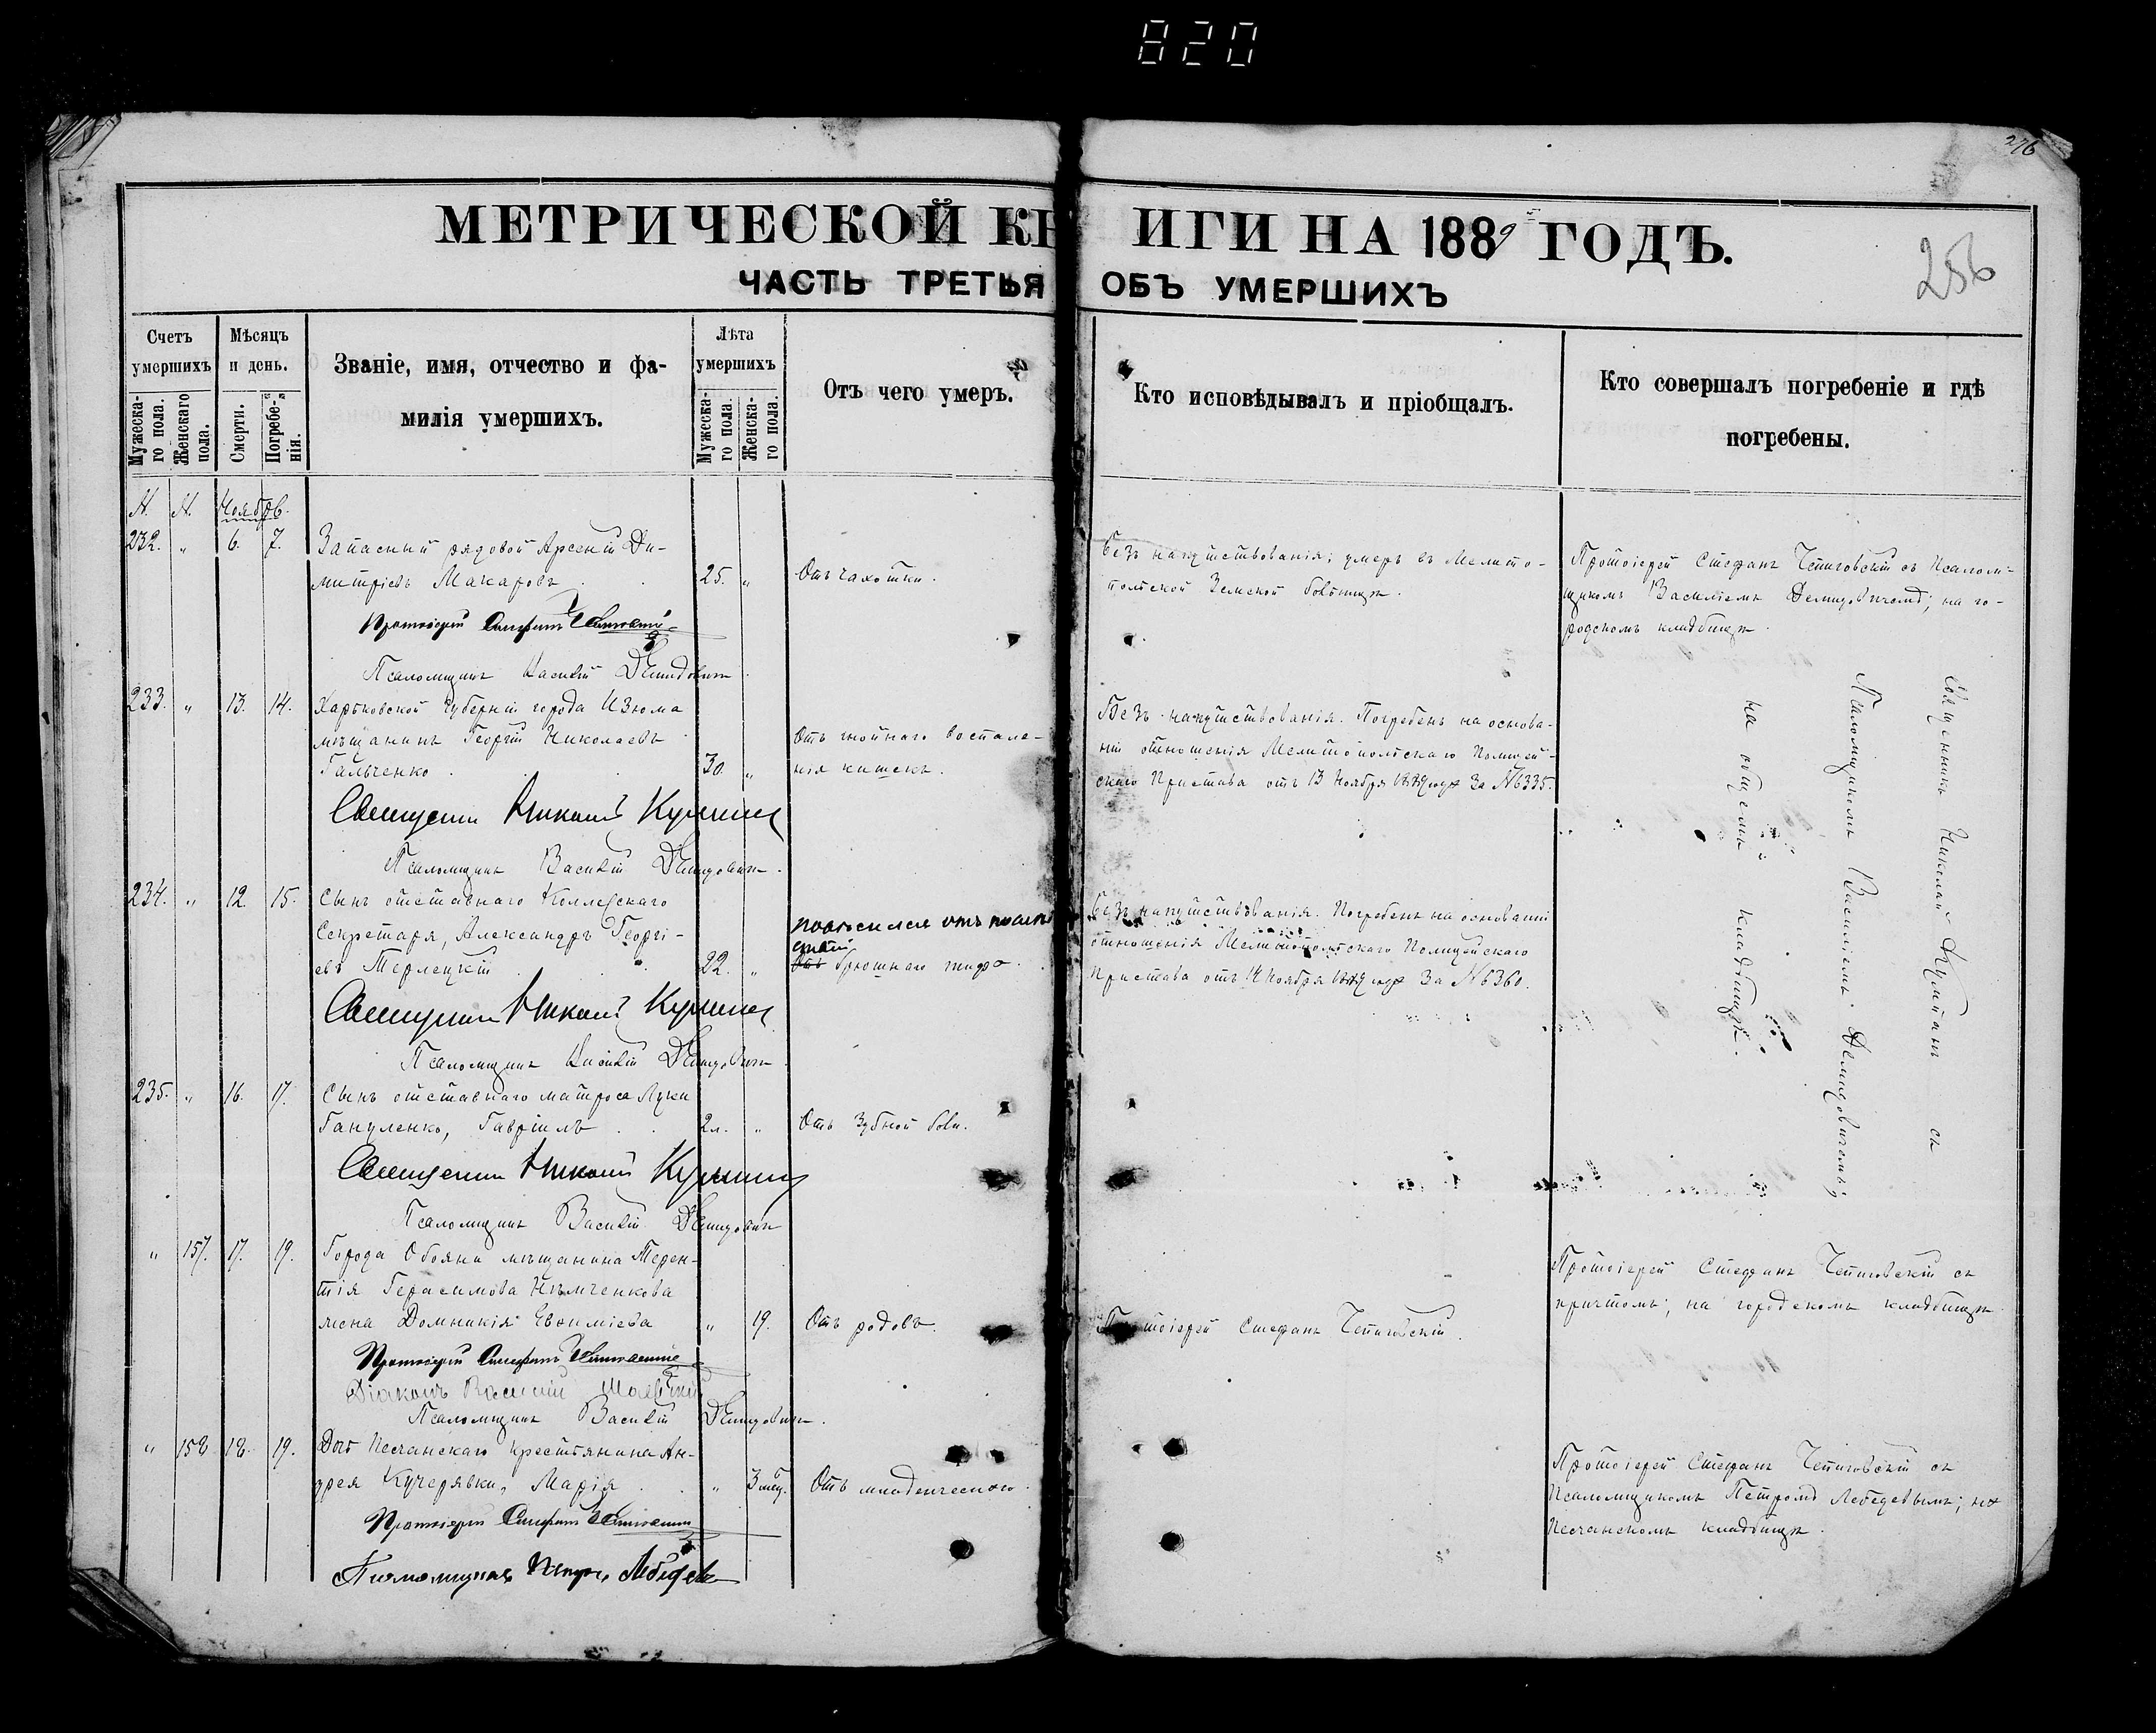 820
276
МЕТРИЧЕСКОЙ КНИГИ НА 1889 ГОДЪ.
256
ЧАСТЬ ТРЕТЬЯ ОБЪ УМЕРШИХЪ
Счетъ умершихъ
Мужеска-го пола.
Женскаго пола.
Мѣсяцъ и день.
Смерти.
Погребе-нія.
Званіе, имя, отчество и фа-
милія умершихъ.
Лѣта умершихъ
Мужеска-го пола
Женска-го пола.
Отъ чего умеръ.
Кто исповѣдывалъ и пріобщалъ.
Кто совершалъ погребеніе и гдѣ
погребены.
Ноябрь.
232. " 6. 7. Запасный рядовой Арсеній Ди-
митріевъ Макаровъ 25. " Отъ чахотки.
Безъ напутствованія; умеръ въ Мелито-
польской Земской больницѣ.
Протоіерей Стефанъ съ Псалом-
щикомъ Василіемъ Демидовичемъ; на го-
родскомъ кладбищѣ.
Протоіерей Стефанъ
Псаломщикъ Василій Демидовичъ
233. " 13. 14. Харьковской губерніи города Изюма
мѣщанинъ Георгій Николаевъ
Гальченко 30. " Отъ гнойнаго воспале-
нія кишекъ.
Безъ напутствованія. Погребенъ на основа-
ніи отношенія Мелитопольскаго Полицей-
скаго Пристава отъ 13 Ноября 1889 года за №6335.
Священникъ Николай
Псаломщикъ Василій Демидовичъ
234. " 12. 15. Сынъ отставнаго Коллежскаго
Секретаря, Александръ Георгі-
евъ Терлецкій 22. "
брюшнаго тифа.
Безъ напутствованія. Погребенъ на основаніи
отношенія Мелитопольскаго Полицейскаго
Пристава отъ 14 Ноября 1889 года за №6360.
Священникъ Николай
Псаломщикъ Василій Демидовичъ
235. " 16. 17. Сынъ отставнаго матроса Луки
Гануленко, Гавріилъ 2л. " Отъ зубной боли.
Священникъ Николай
Псаломщикъ Василій Демидовичъ
Священникъ Николай съ
Псаломщикомъ Василіемъ Демидовичемъ;
на общемъ кладбищѣ.
" 157. 17. 19. Города Обояни мѣщанина Терен-
тія Герасимова Нѣмченкова
жена Домникія Евѳиміева " 19. Отъ родовъ.
Протоіерей Стефанъ
Протоіерей Стефанъ съ
причтомъ; на городскомъ кладбищѣ.
Протоіерей Стефанъ
Діаконъ Василій
Псаломщикъ Василій Демидовичъ.
" 158. 18. 19. Дочь Песчанскаго крестьянина Ан-
дрея Кучерявки, Марія " 3 мѣс. Отъ младенческаго.
Протоіерей Стефанъ съ
Псаломщикомъ Петромъ Лебедевымъ; на
Песчанскомъ кладбищѣ.
Протоіерей Стефанъ
Псаломщикъ Петръ Лебедевъ